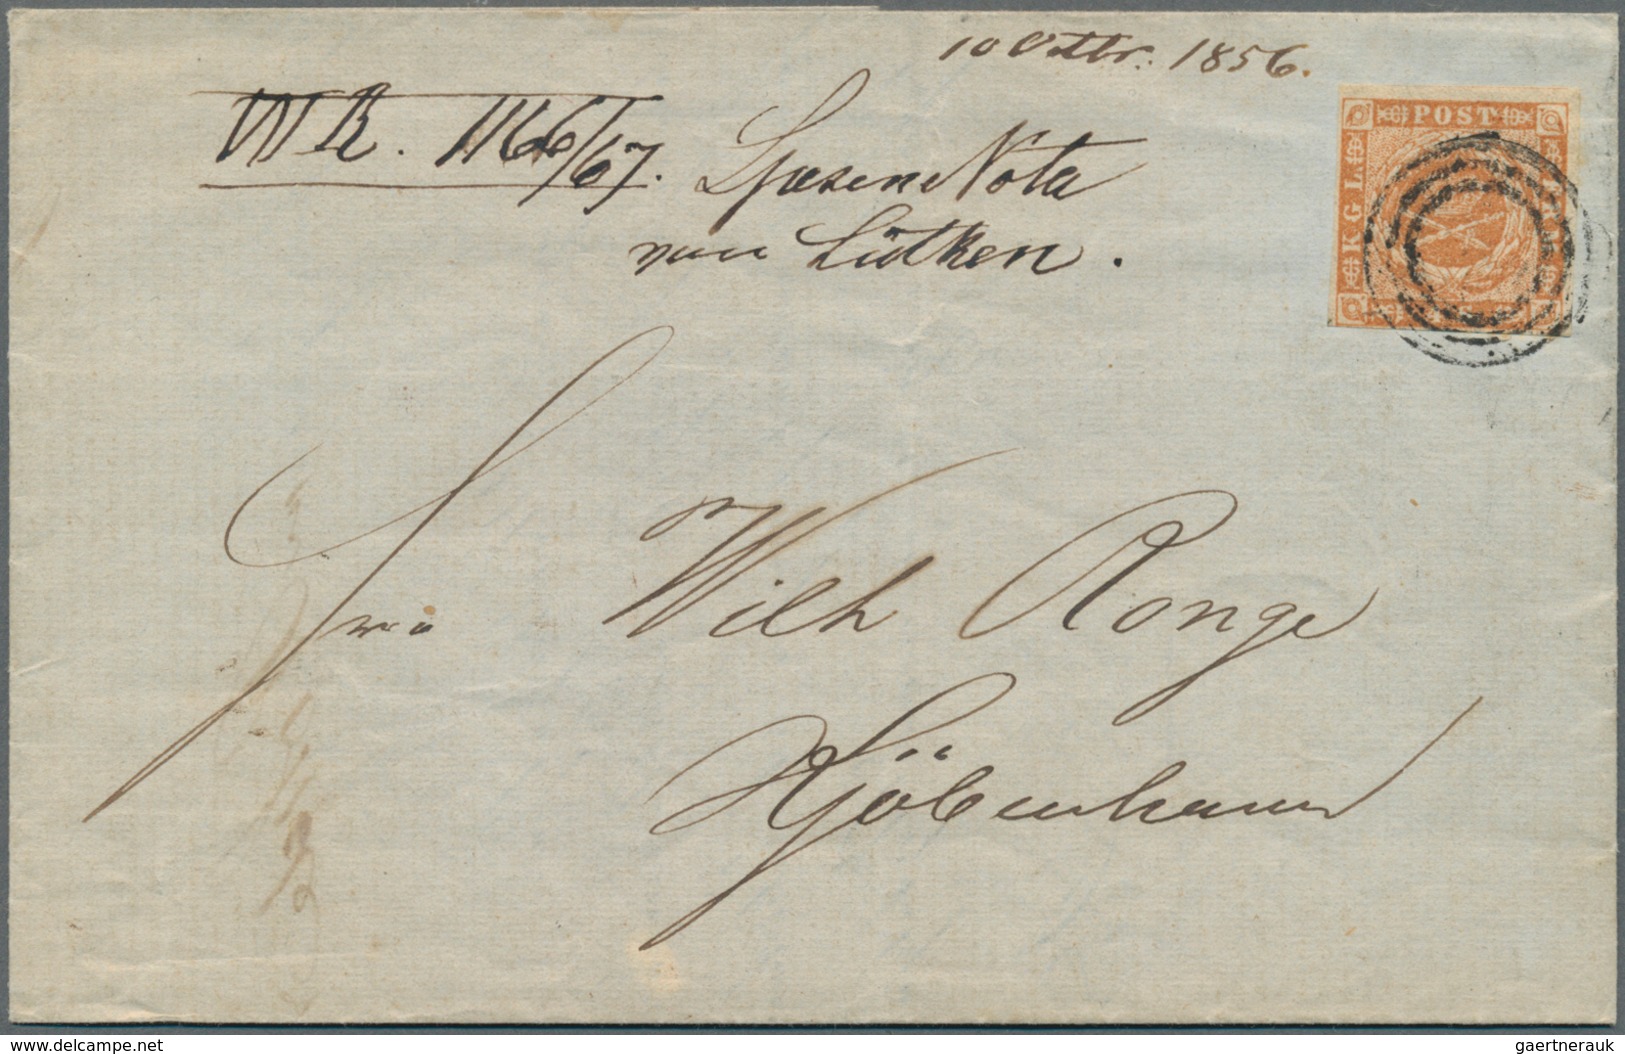 10 Octbr. 1856.
WR. 1166/67.
Nota
von Lütken.
POST
KGL
Wilh Ronge
Kjöbenhavn
www.delcampe.net
gaertnerauk